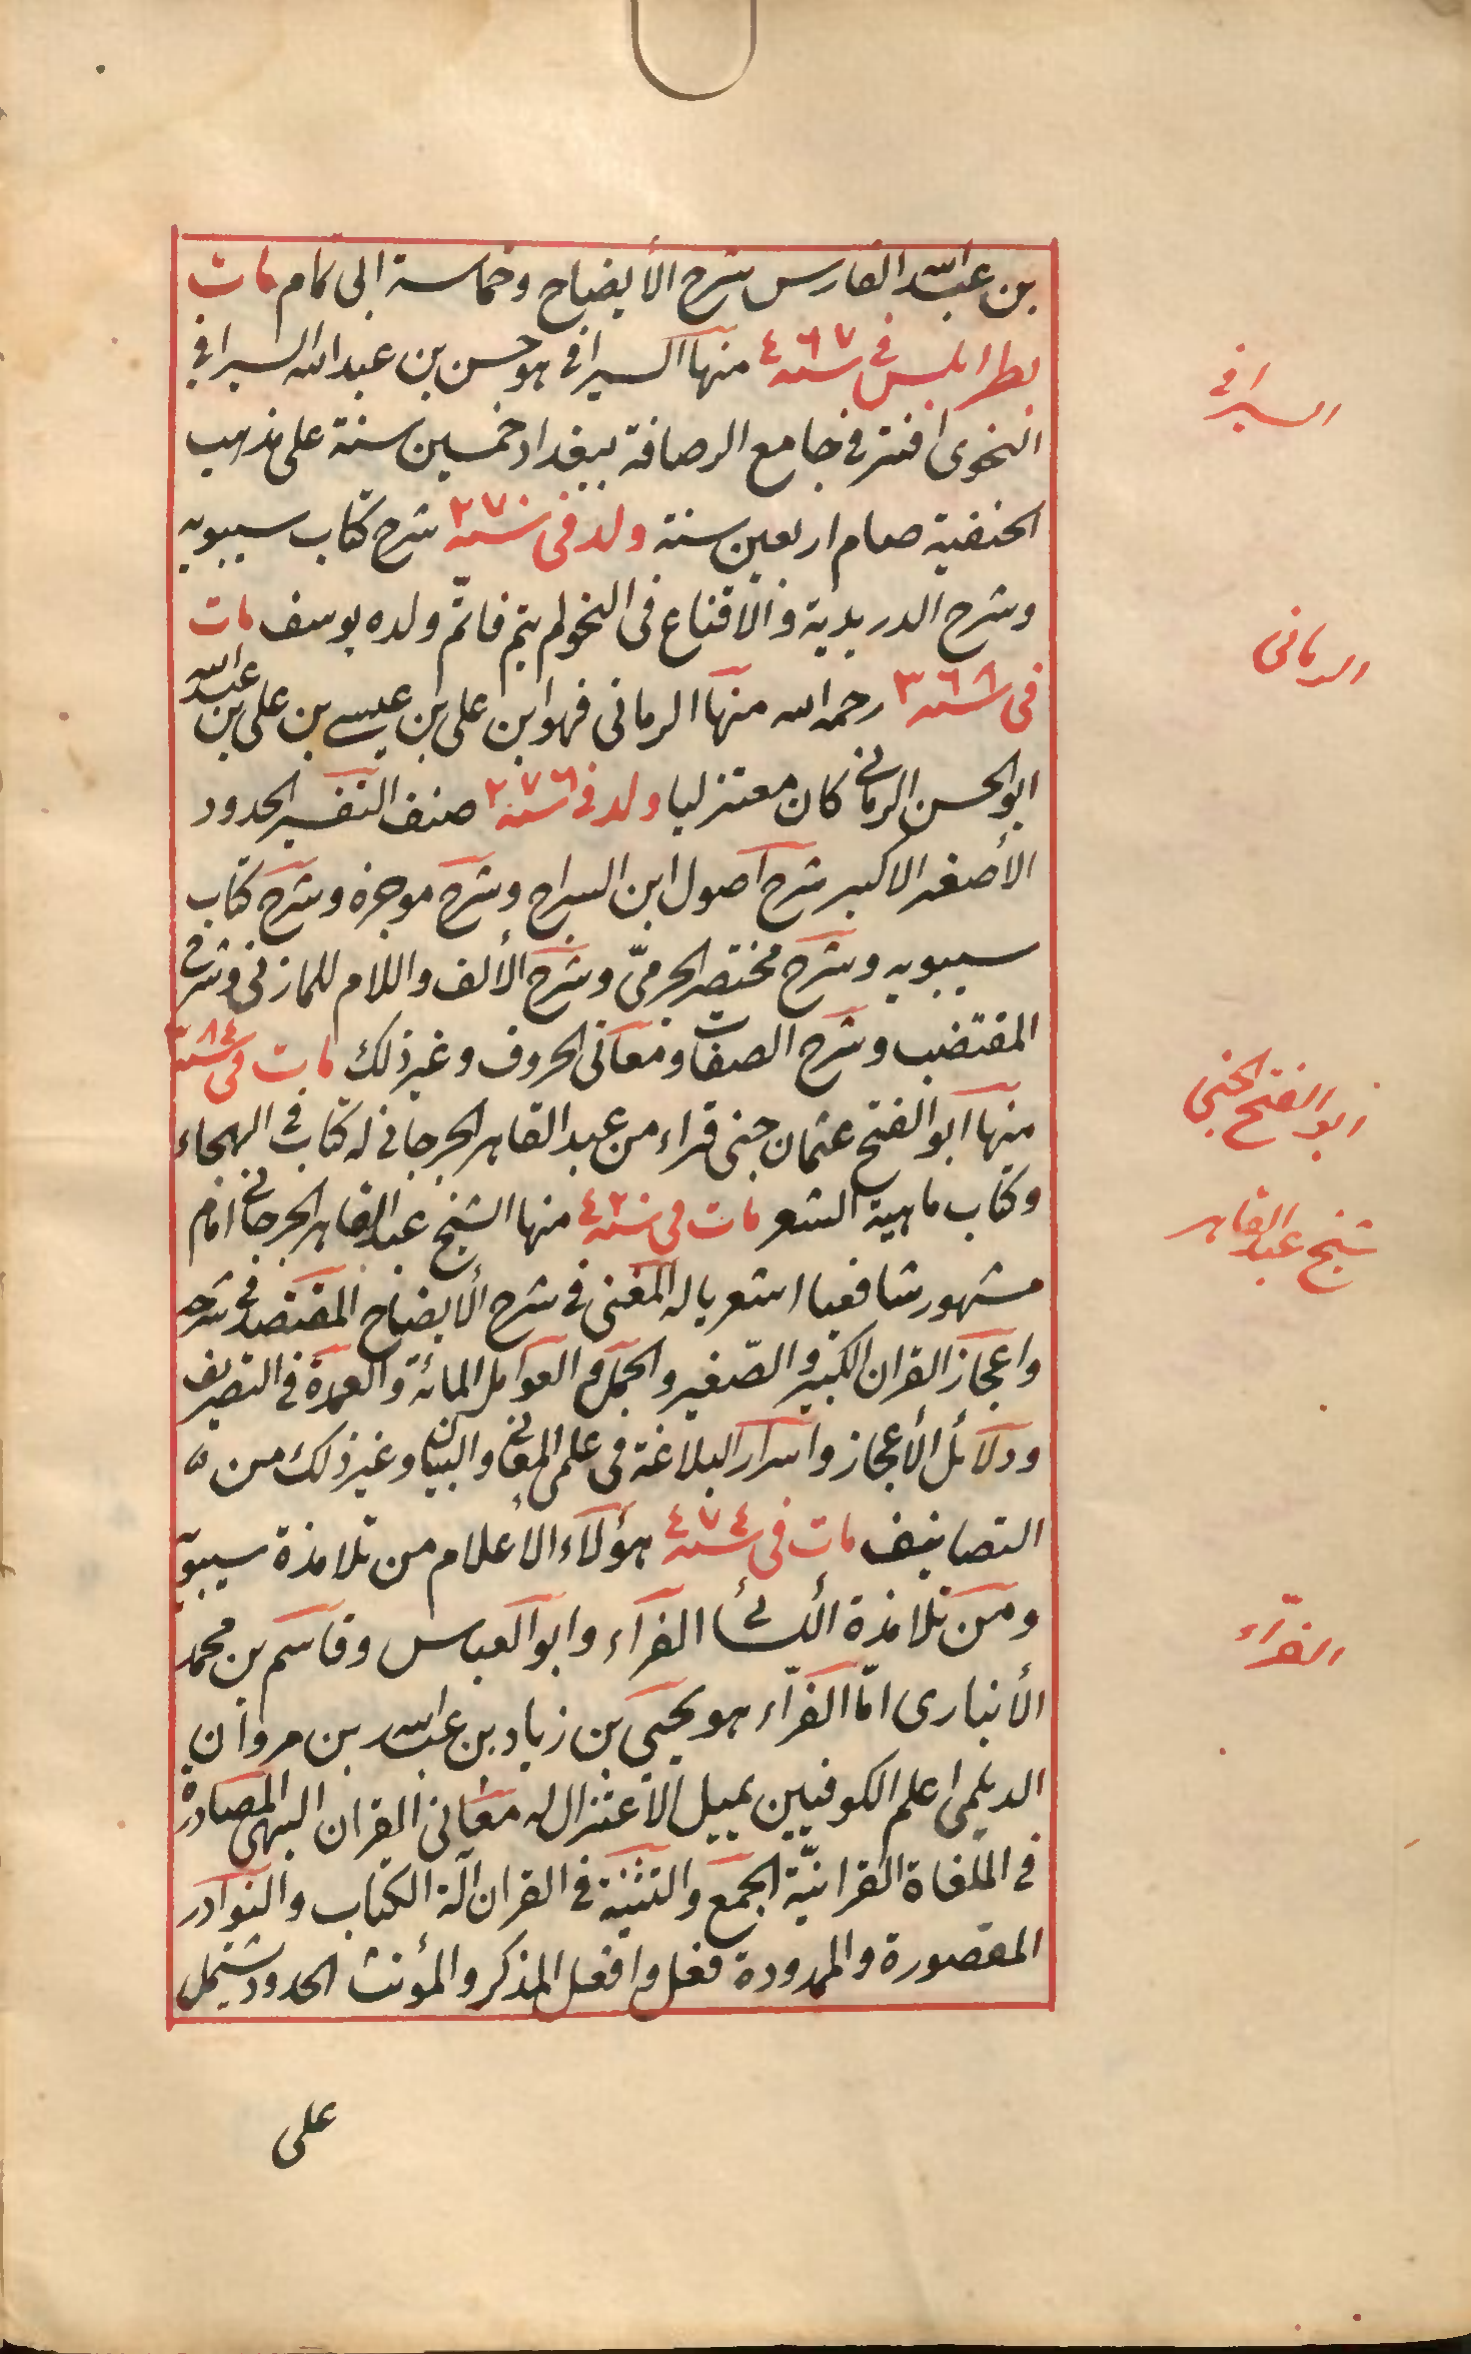 بن عبد الله الفارس شرح الأيضاح وحماسة ابى تمام مات
بطرابلس فى سنة ٤٦٧ منها السيرافى هو حسن بن عبد الله السيرافى
النحوى افتى فى جامع الرصافة ببغداد خمسين سنة على مذهب
الحنفية صام اربعين سنة ولد فى سنة ٢٧٠ شرح كتاب سيبويه
وشرح الدريدية والاقناع فى النحو لم يتم فاتمّ ولده يوسف مات
فى سنة ٣٦٨ رحمه الله منها الرمانى فهو ابن على بن عيسى بن على بن عبد الله
ابو الحسن الرمانى كان معتزليا ولد فى سنة ٢٧٦ صنف التفسير الحدود
الأصغر الاكبر شرح اصول ابن السراج وشرح موجزه وشرح كتاب
سيبويه وشرح مختصر الجرمىّ وشرح الألف واللام للمازنى وشرح
المقتضب وشرح الصفات ومعانى الحروف وغير ذلك مات فى سنة ٣٨٤
منها ابو الفتح عثمان جنى قراء من عبد القاهر الجرجانى له كتاب فى الهجاء
وكتاب ماهية الشعر مات فى سنة ٤٢٠ منها الشيخ عبد القاهر الجرجانى امام
مشهور شافعيا اشعريا له المغنى فى شرح الأيضاح المقتصد فى شرحه
واعجاز القران الكبير والصّغير والجمل والعوامل المائة والعمدة فى التصريف
ودلائل الأعجاز واسرار البلاغة فى علمى المعانى والبيان وغير ذلك من
التصانيف مات فى سنة ٤٧٤ هؤلاء الأعلام من تلامذة سيبويه
ومن تلامذة الكسائى الفراء وابو العباس وقاسم بن محمد
الأنبارى امّا الفرّاء هو يحيى بن زياد بن عبد الله بن مروان
الديلمى اعلم الكوفيين يميل الاعتزال له معانى القران البهى المصادر
فى اللغاة القرانيّة الجمع والتثنية فى القران آلة الكتاب والنوادر
المقصورة والممدودة فعل وافعل المذكر والمؤنث الحدود يشتمل
على
السيرافى
الرمانى
ابو الفتح الجنى
شيخ عبد القاهر
الفرّاء